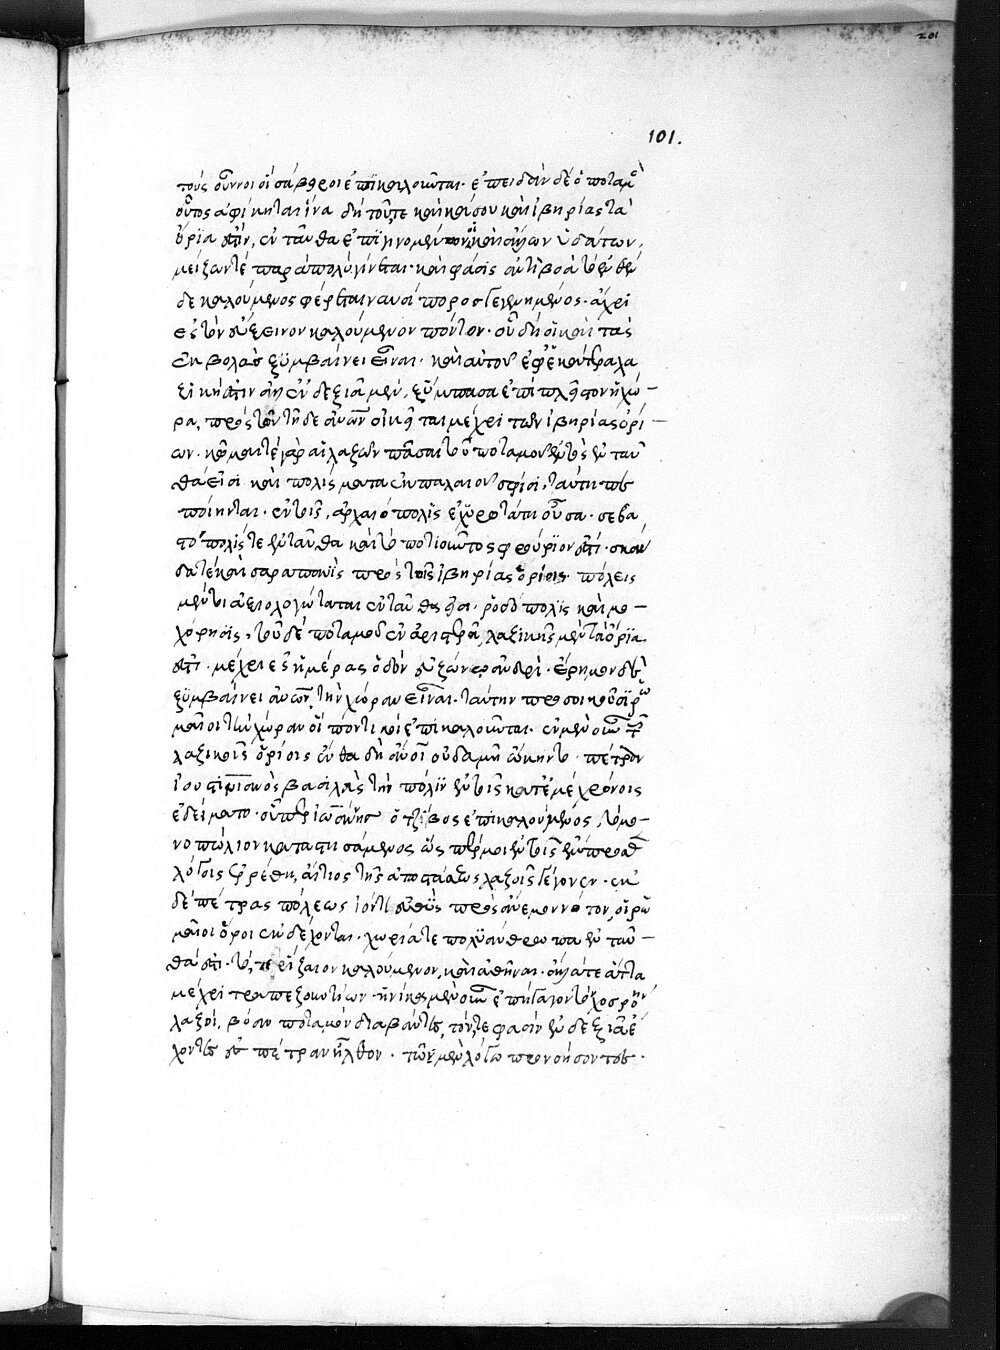 201
101.
τούς οὖννοι οἱ σάβηροι ἐπϊκαλοῦνται· ἐπειδὰν δὲ ὁ ποταμὸς
οὗτος ἀφίκηται ἵνα δὴ τοῦτε καὶ καύσου καὶ ἰβηρίας τὰ
ὅρϊα ἐστὶν, ἐνταῦθα ἐπϊγινομένων οἱ καὶ ἄλλων ὑδάτων,
μείζων τέ παραπολὺ γίνεται· καὶ φάσις ἀντὶ βόα τὸ ἐνθένδε
δε καλούμενος φέρεται ναυσίπορος γεγενημένος· ἄχρι
ἐς τὸν εὔξεινον καλούμενον πόντον· οὗ δὴ οἱ καὶ τὰς
ἐκβολὰς ξϋμβαίνει εἶναι· καὶ αὐτοῦ ἐφ' ἑκάτερα λα
ζικὴ ἐστὶν ἀλλ' ἐν δεξιᾶ μὲν, ξύμπασα ἐπὶ πλεῖστον ἡ χώ-
ρα, πρὸς τῶν τῆδε ἀνθρώπων οἰκεῖται μέχρι τῶν ἰβηρίας ὁρί-
ων· κῶμαι τε γὰρ αἱ λαζῶν πᾶσαι τοῦ ποταμοῦ ἐντὸς ἐνταῦ
θά εἰσι καὶ πολίσματα ἐκ παλαιοῦ σφίσι, ταύτη πε
ποίηνται· ἐν τοῖς, ἀρχαιόπολὶς ἐχυρωτάτη οὖσα· σεβα
στόπολίς τε ἐνταῦθα καὶ τὸ πιτιοῦντος φρούρϊον ἐστὶ· σκαν
δα τὲ καὶ σαραπανὶς πρὸς τοῖς ἰβηρίας ὁρίοις· πόλεις
μέντοι ἀξιολογώταται ἐνταῦθά εἰσι· ῥοδόπολϊς καὶ μο-
χόρησϊς, τοῦ δὲ ποταμοῦ ἐν ἀριστερᾶ, λαζικῆς μὲν τὰ ὅρϊα
ἐστὶ· μέχρι ἐς ἡμέρας ὁδὸν εὐζώνω ἀνδρὶ· ἔρημον δὲ
ξϋμβαίνει ἀνθρώπων τὴν χώραν εἶναι· ταύτην προσοικοῦσι ῥω
μαῖοι τὴν χώραν οἳ ποντικοὶ ἐπϊκαλοῦνται· ἐν μὲν οὖν τοῖς
λαζικοῖς ὁρίοις ἔνθα δὴ ἀνθρωποι οὐδαμῆ ὤκηντο πέτραν
ἰουστινιανὸς βασιλεὺς τὴν πόλϊν ἐν τοῖς κατ' ἐμὲ χρόνοις
ἐδείματο· οὗπερ ἰωάννης ὁ τζίβος ἐπικαλούμενος, τὸ μο-
νοπώλιον καταστησάμενος ὥς πέρ μοι ἐν τοῖς ἔμπροσθεν
λόγοις ἐρρέθη, αἴτιος τῆς ἀποστάσεως λαζοῖς γέγονεν· ἐκ
δὲ πέτρας πόλεως ἰόντι εὐθὺς πρὸς ἄνεμον νότον, οἱ ῥω
μαῖοι ὅροι ἐκδέχονται· χωρία τε πολϋάνθρωπα ἐνταῦ-
θά ἐστι· τό, τε ῥίζαιον καλούμενον, καὶ ἀθῆναι· ἄλλα τε ἄττα
μέχρι τραπεζουντίων· ἡνίκα μὲν οὖν ἐπήγαγοντο χοσρόην
λαζοὶ, βόαν ποταμὸν διαβάντες, τόν τε φᾶσιν ἐν δεξιᾶ ἔ
χοντες ἐς πέτραν ἦλθον· τῶ μὲν λόγω προνοήσοντες·